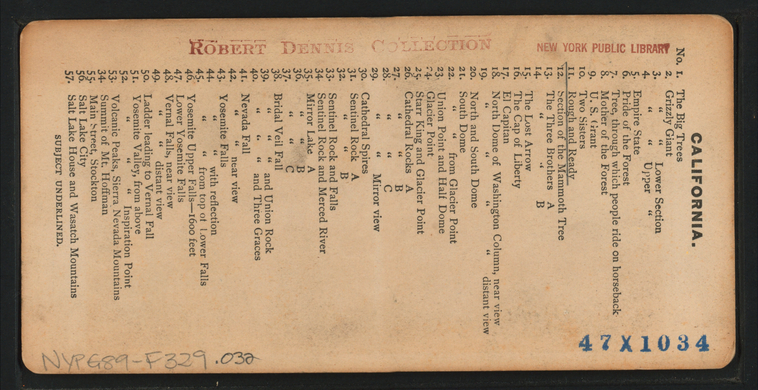 ROBERT DENNIS COLLECTION
NEW YORK PUBLIC LIBRARY
CALIFORNIA.
No. 1. The Big Trees
2. Grizzly Giant
3. " " Lower Section
4. " " Upper "
5. Empire State
6. Pride of the Forest
7. Tree, through which people ride on horseback
8. Mother of the Forest
9. U. S. Grant
10. Two Sisters
11. Rough and Ready
12. Section of the Mammoth Tree
13. The Three Brothers A
14. " " " B
15. The Lost Arrow
16. The Cap of Liberty
17. El Capitan
18. North Dome of Washington Column, near view
19. " " " " distant view
20. North and South Dome
21. South Dome
22. " " from Glacier Point
23. Union Point and Half Dome
24. Glacier Point
25. Starr King and Glacier Point
26. Cathedral Rocks A
27. " " B
28. " " C
29. " " Mirror view
30. Cathedral Spires
31. Sentinel Rock A
32. " " B
33. Sentinel Rock and Falls
34. Sentinel Rock and Merced River
35. Mirror Lake A
36. " " B
37. " " C
38. Bridal Veil Fall
39. " " " and Union Rock
40. " " " and Three Graces
41. Nevada Fall
42. " " near view
43. Yosemite Falls
44. " " with reflection
45. " " from top of Lower Falls
46. Yosemite Upper Falls—1000 feet
47. Lower Yosemite Falls
48. Vernal Falls, near view
49. " " distant view
50. Ladder leading to Vernal Fall
51. Yosemite Valley, from above
52. " " " Inspiration Point
53. Volcanic Peaks, Sierra Nevada Mountains
54. Summit of Mt. Hoffman
55. Main Street, Stockton
56. Salt Lake City
57. Salt Lake House and Wasatch Mountains
SUBJECT UNDERLINED.
47X1034
NYPG89-F329.032